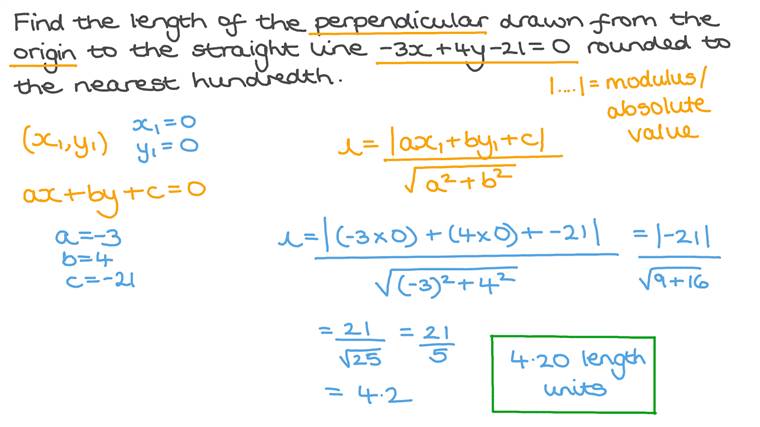 Find the length of the perpendicular drawn from the
origin to the straight line -3x+4y-21=0 rounded to
the nearest hundredth.
|....| = modulus/
absolute
value
(x₁,y₁)
x₁=0
y₁=0
ax+by+c=0
a=-3
b=4
c=-21
L= |ax₁+by₁+c|
√a²+b²
L= |(-3×0) + (4×0) + -21| = |-21|
√(-3)²+4² √9+16
= 21 = 21
√25 5
= 4.2
4.20 length
units